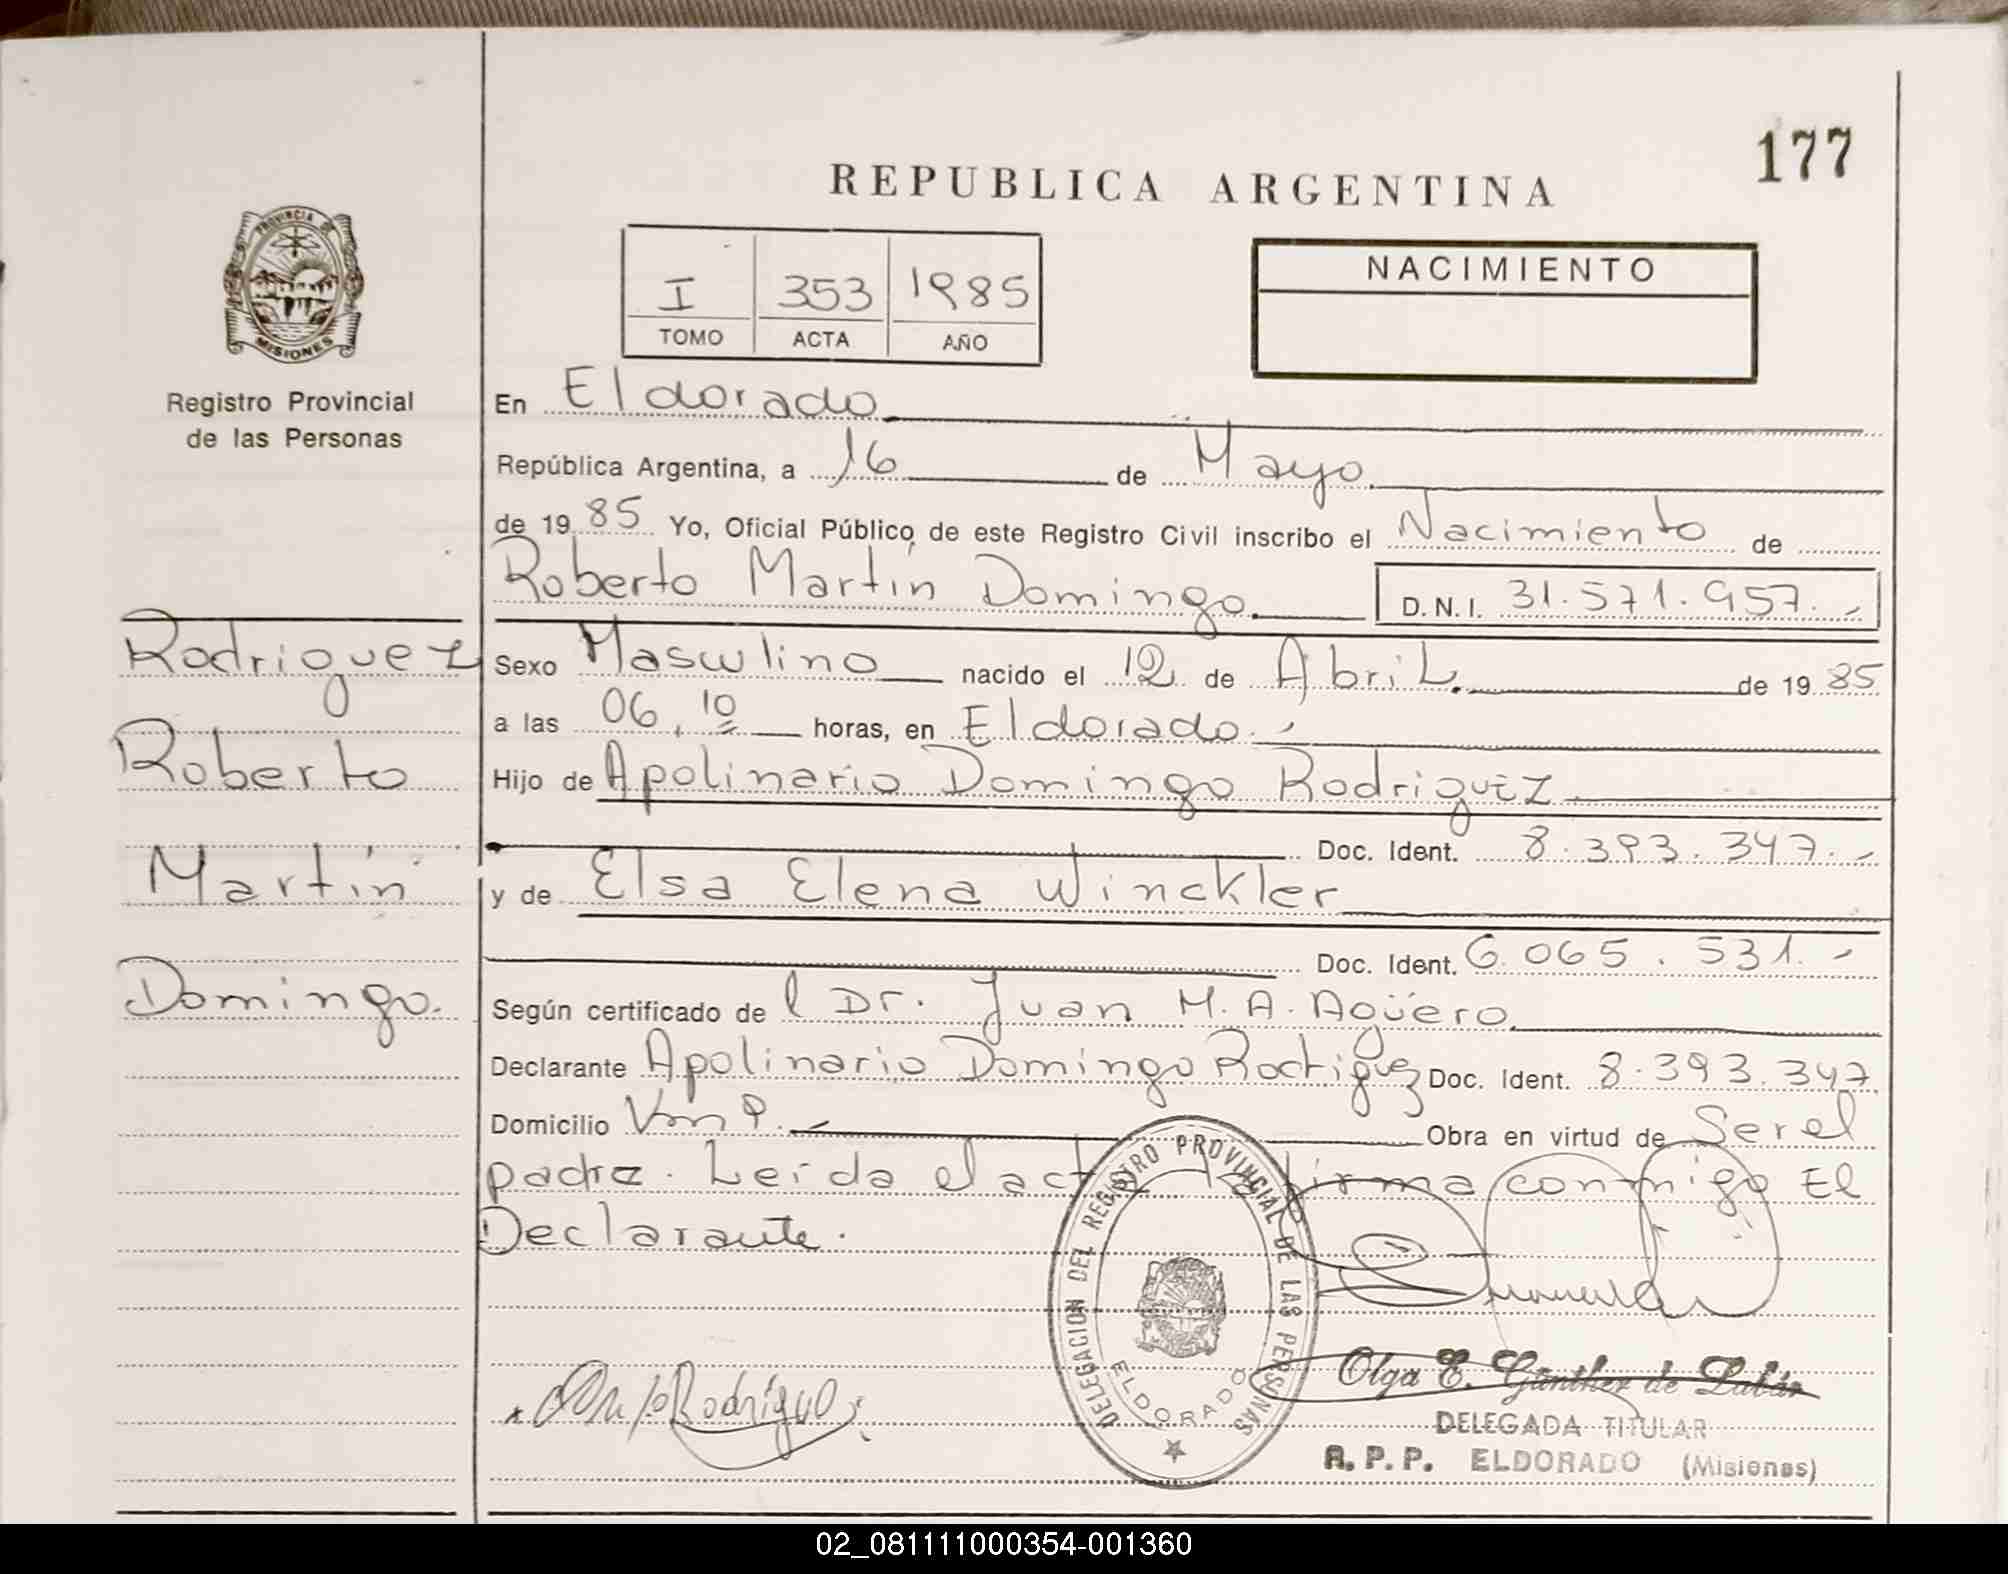 177
REPUBLICA ARGENTINA
PROVINCIA DE
MISIONES
Registro Provincial
de las Personas
I 353 1985
TOMO ACTA AÑO
NACIMIENTO
En Eldorado
República Argentina, a 16 de Mayo
de 1985 Yo, Oficial Público de este Registro Civil inscribo el Nacimiento de
Roberto Martín Domingo. D.N.I. 31.571.957.-
Rodriguez
Roberto
Martín
Domingo.
Sexo Masculino nacido el 12 de Abril. de 1985
a las 06,10 horas, en Eldorado.-
Hijo de Apolinario Domingo Rodriguez
Doc. Ident. 8.393.347.-
y de Elsa Elena Winckler
Doc. Ident. 6.065.531.-
Según certificado de l Dr. Juan M. A. Agüero
Declarante Apolinario Domingo Rodriguez Doc. Ident. 8.393.347
Domicilio Obra en virtud de Ser el
padre. Leída el acta la firma conmigo El
Declarante.
DELEGACION DEL REGISTRO PROVINCIAL DE LAS PERSONAS
ELDORADO
Rodríguez
Olga E. Günther de
DELEGADA TITULAR
R.P.P. ELDORADO (Misiones)
02_081111000354-001360